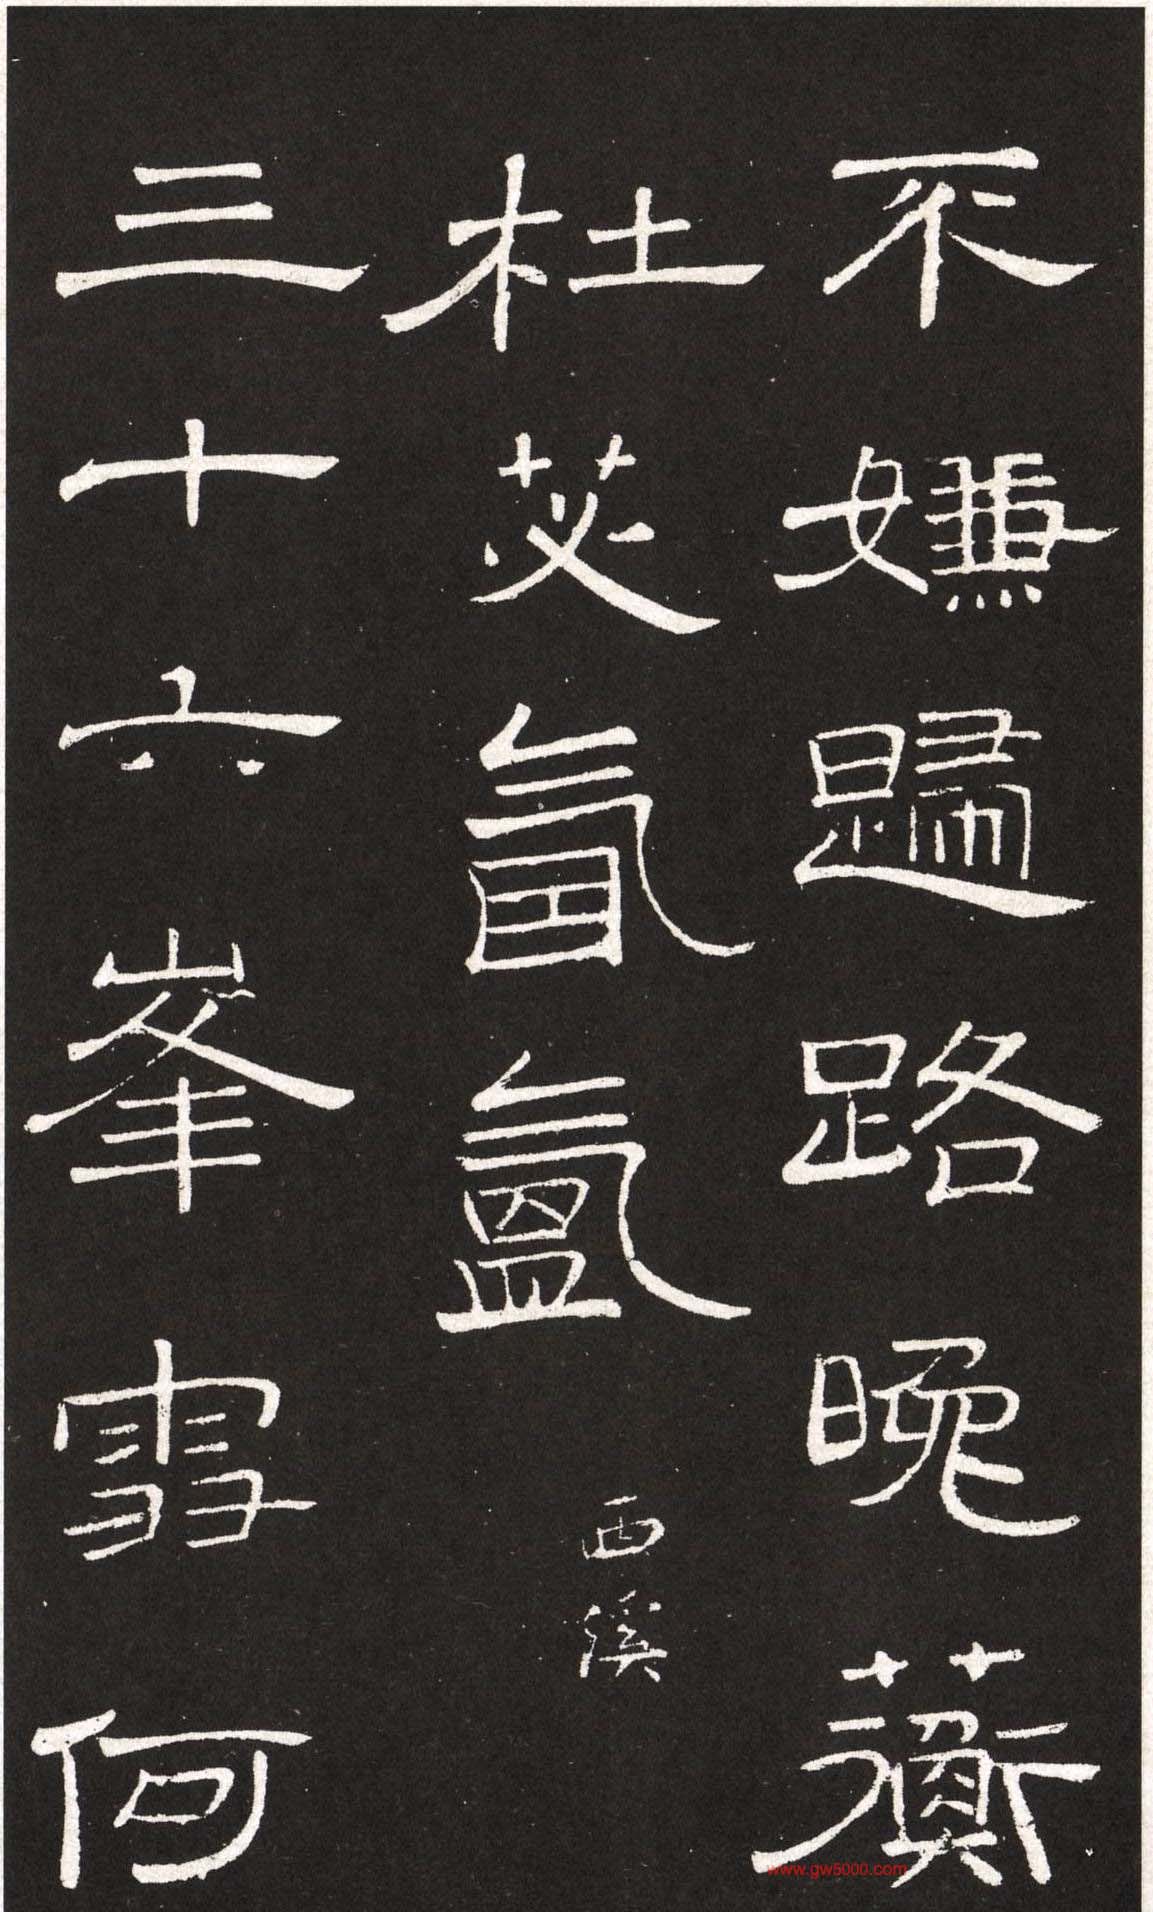 不嫌歸路晚蘅
杜苾氤氳
西溪
三十六峯雪何
www.gw5000.com